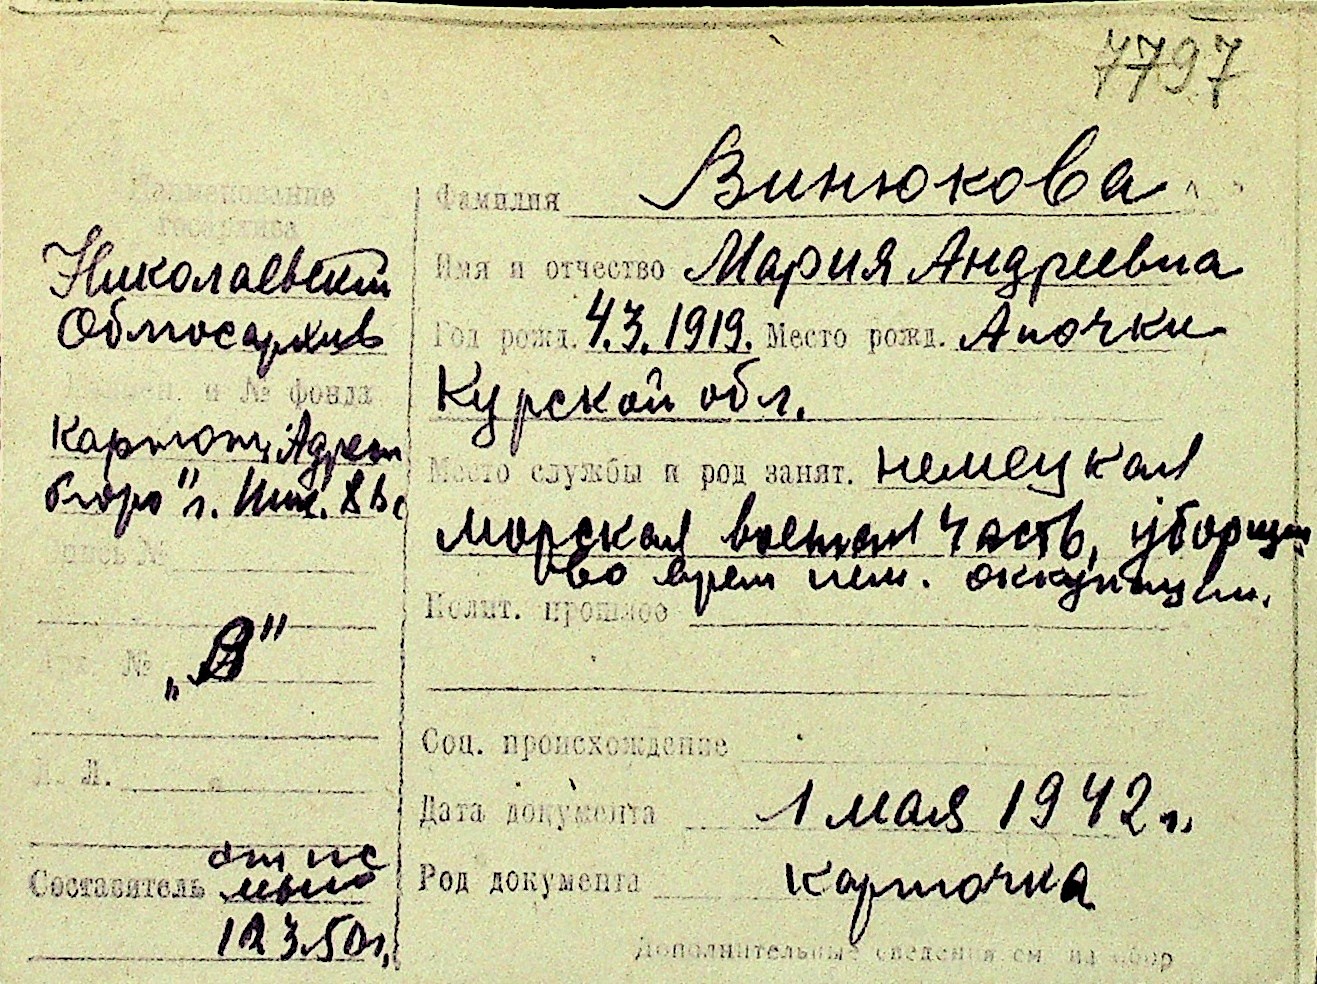 7797
Наименование
госархива
Николаевский
Облгосархив
Наимен. и № фонда
Картот. „Адресн
бюро" г. Ник.
Опись №
„В"
Арх. №
Л. Л.
Составитель
12 3.50 г.
Фамилия Винюкова
Имя и отчество Мария Андреевна
Год рожд. 4.3.1919. Место рожд. Апочки
Курской обл.
Место службы и род занят. немецкая
морская военная часть, уборщи
во врем нем. оккупации.
Полит. прошлое
Соц. происхождение
Дата документа 1 мая 1942 г.
Род документа карточка
Дополнительные сведения см. на обор